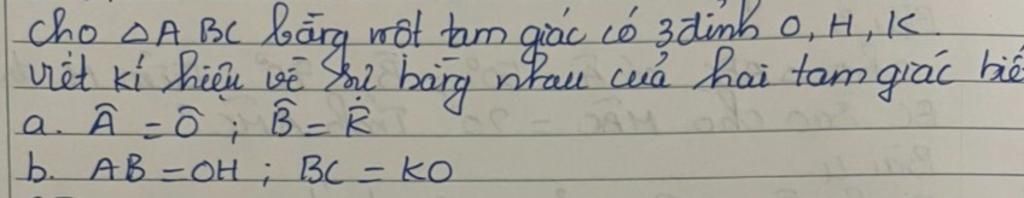 Cho △ABC bằng một tam giác có 3 đỉnh O, H, K
viết kí hiệu về sự bằng nhau của hai tam giác biế
a. Â = Ô ; B̂ = K̂
b. AB = OH ; BC = KO